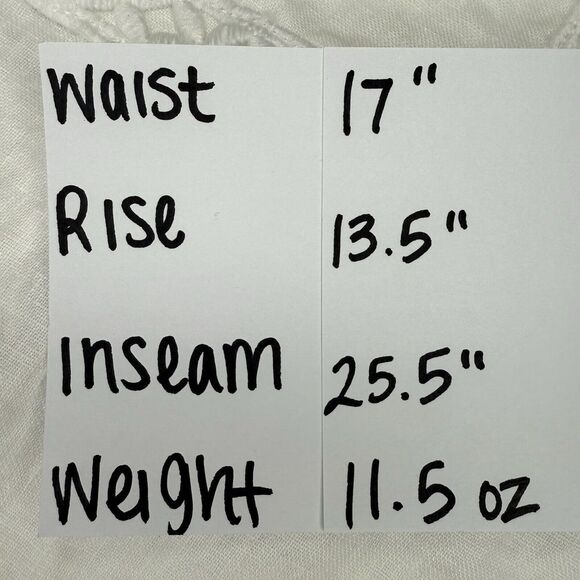 Waist 17"
Rise 13.5"
Inseam 25.5"
Weight 11.5 oz